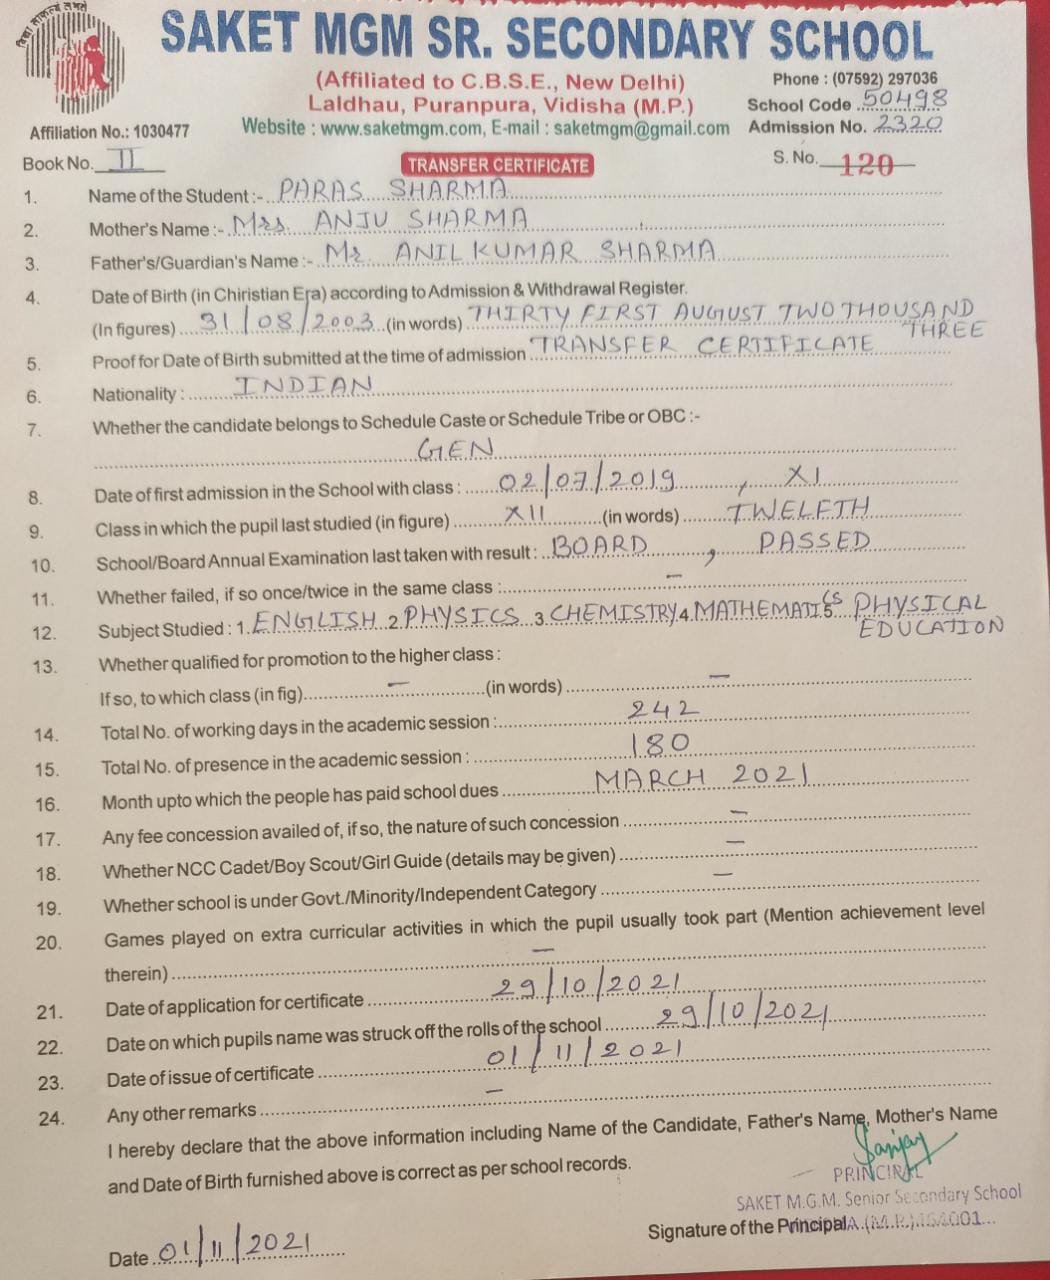 विद्या साकल्यं लभते
SAKET MGM SR. SECONDARY SCHOOL
(Affiliated to C.B.S.E., New Delhi)
Phone : (07592) 297036
Laldhau, Puranpura, Vidisha (M.P.)
School Code 50498
Affiliation No.: 1030477
Website : www.saketmgm.com, E-mail : saketmgm@gmail.com
Admission No. 2320
Book No. II
TRANSFER CERTIFICATE
S. No. 120
1. Name of the Student :- PARAS SHARMA
2. Mother's Name :- Mrs. ANJU SHARMA
3. Father's/Guardian's Name :- Mr. ANIL KUMAR SHARMA
4. Date of Birth (in Chiristian Era) according to Admission & Withdrawal Register.
(In figures) 31/08/2003 (in words) THIRTY FIRST AUGUST TWO THOUSAND
THREE
5. Proof for Date of Birth submitted at the time of admission TRANSFER CERTIFICATE
6. Nationality : INDIAN
7. Whether the candidate belongs to Schedule Caste or Schedule Tribe or OBC :-
GEN
8. Date of first admission in the School with class : 02/07/2019, XI
9. Class in which the pupil last studied (in figure) XII (in words) TWELFTH
10. School/Board Annual Examination last taken with result : BOARD, PASSED
11. Whether failed, if so once/twice in the same class : –
12. Subject Studied : 1. ENGLISH 2. PHYSICS 3. CHEMISTRY 4. MATHEMATICS 5. PHYSICAL
EDUCATION
13. Whether qualified for promotion to the higher class :
If so, to which class (in fig) – (in words) –
14. Total No. of working days in the academic session : 242
15. Total No. of presence in the academic session : 180
16. Month upto which the people has paid school dues MARCH 2021
17. Any fee concession availed of, if so, the nature of such concession –
18. Whether NCC Cadet/Boy Scout/Girl Guide (details may be given) –
19. Whether school is under Govt./Minority/Independent Category –
20. Games played on extra curricular activities in which the pupil usually took part (Mention achievement level
therein) –
21. Date of application for certificate 29/10/2021
22. Date on which pupils name was struck off the rolls of the school 29/10/2021
23. Date of issue of certificate 01/11/2021
24. Any other remarks –
I hereby declare that the above information including Name of the Candidate, Father's Name, Mother's Name
and Date of Birth furnished above is correct as per school records.
Sanjay
PRINCIPAL
SAKET M.G.M. Senior Secondary School
Signature of the Principal (M.P.)
Date 01/11/2021